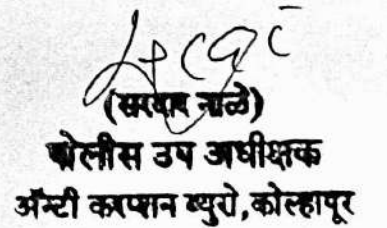 (सरदार नाळे)
पोलीस उप अधीक्षक
अँन्टी करप्शन ब्युरो, कोल्हापूर